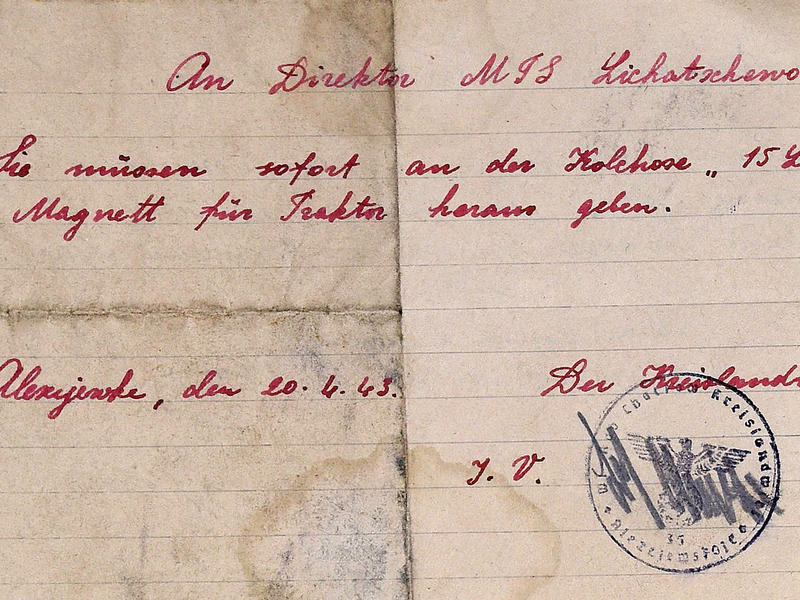 An Direktor MTS Lichatschewo
Sie müssen sofort an der Kolchose „ 15
Magnett für Traktor heraus geben.
Alexejewke, den 20. 4. 43.
Der Kreislandw
I. V.
Kreislandw
Alexejewskoje
35